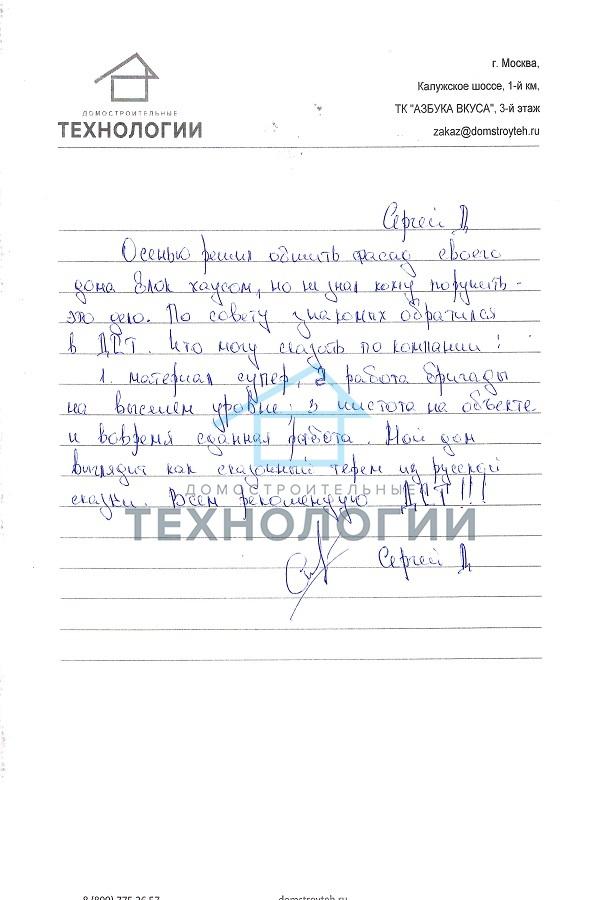 ДОМОСТРОИТЕЛЬНЫЕ
ТЕХНОЛОГИИ
г. Москва,
Калужское шоссе, 1-й км,
ТК "АЗБУКА ВКУСА", 3-й этаж
zakaz@domstroyteh.ru
Сергей Д
Осенью решил обшить фасад своего
дома блок хаусом, но не знал кому поручить
это дело. По совету знакомых обратился
в ДСТ. Что могу сказать по компании:
1. материал супер, 2 работа бригады
на высшем уровне; 3 чистота на объекте
и вовремя сданная работа. Мой дом
выглядит как сказочный терем из русской
сказки. Всем рекомендую ДСТ!!!
ДОМОСТРОИТЕЛЬНЫЕ
ТЕХНОЛОГИИ
Сергей Д